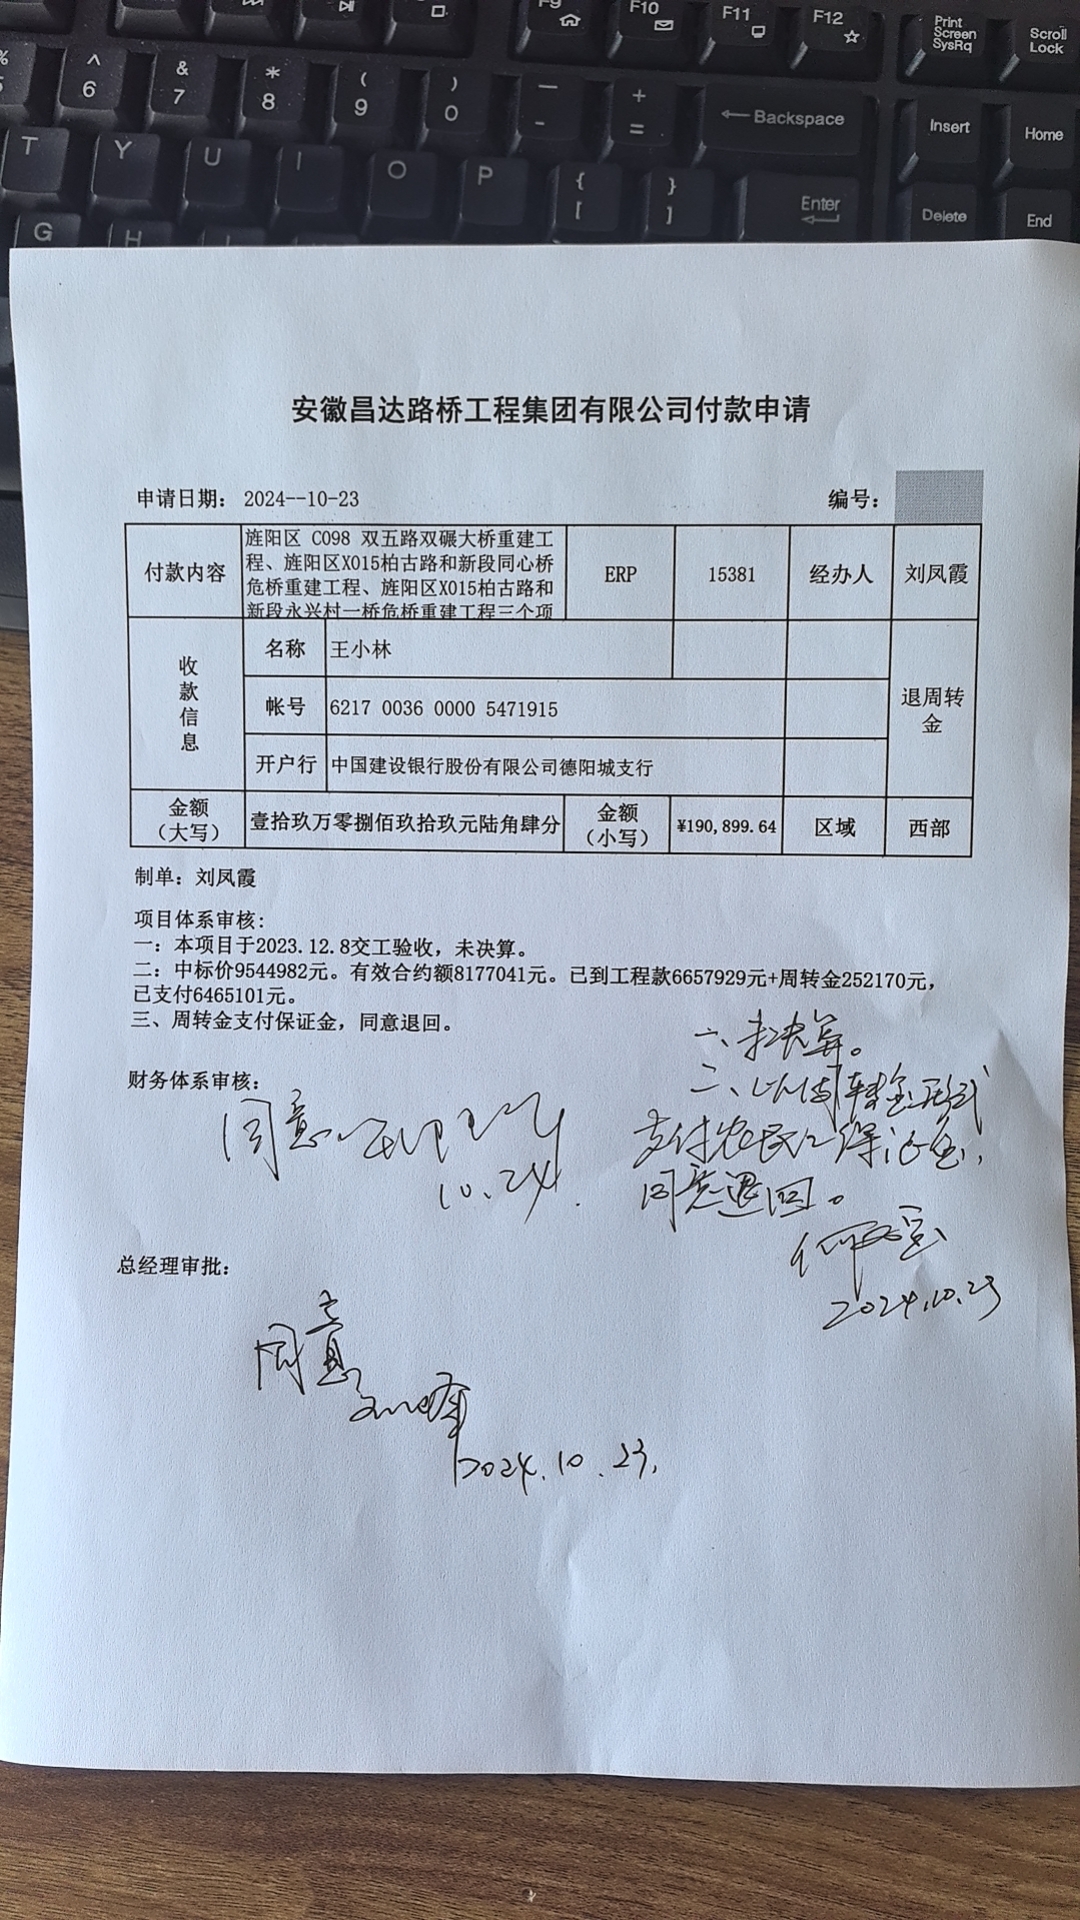 F9
F10
F11
F12
Print
Screen
SysRq
Scroll
Lock
%
5
^
6
&
7
*
8
(
9
)
0
—
-
+
=
← Backspace
Insert
Home
T
Y
U
I
O
P
{
[
}
]
Enter
Delete
End
G
H
安徽昌达路桥工程集团有限公司付款申请
申请日期: 2024--10-23
编号:
付款内容
旌阳区 C098 双五路双碾大桥重建工
程、旌阳区X015柏古路和新段同心桥
危桥重建工程、旌阳区X015柏古路和
新段永兴村一桥危桥重建工程三个项
ERP
15381
经办人
刘凤霞
收款信息
名称
王小林
帐号
6217 0036 0000 5471915
开户行
中国建设银行股份有限公司德阳城支行
退周转
金
金额
(大写)
壹拾玖万零捌佰玖拾玖元陆角肆分
金额
(小写)
¥190,899.64
区域
西部
制单: 刘凤霞
项目体系审核:
一: 本项目于2023.12.8交工验收, 未决算。
二: 中标价9544982元。有效合约额8177041元。已到工程款6657929元+周转金252170元,
已支付6465101元。
三、周转金支付保证金, 同意退回。
一、未决算。
二、以周转金形式
支付农民工保证金,
同意退回。
2024.10.23
财务体系审核:
同意
10.24.
总经理审批:
同意
2024.10.23.